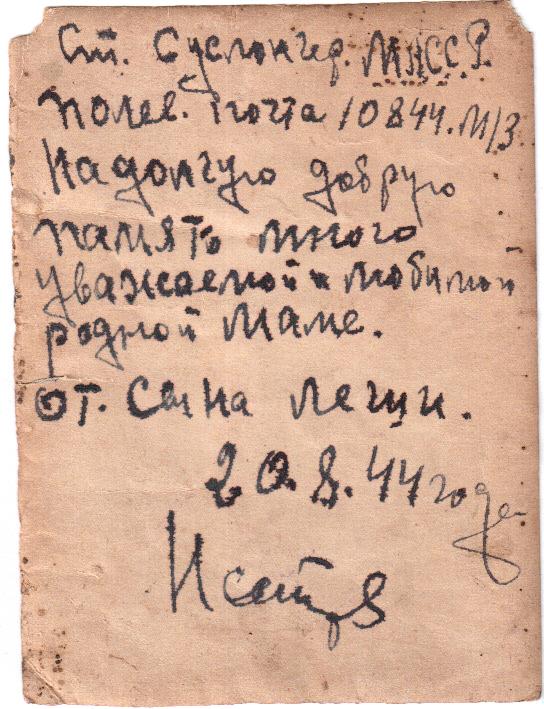 ст. Суслонгер. МАССР.
полев. почта 10844. М/З
На долгую добрую
память много
уважаемой и любимой
родной Маме.
от. Сына Лещи.
20.8.44 года